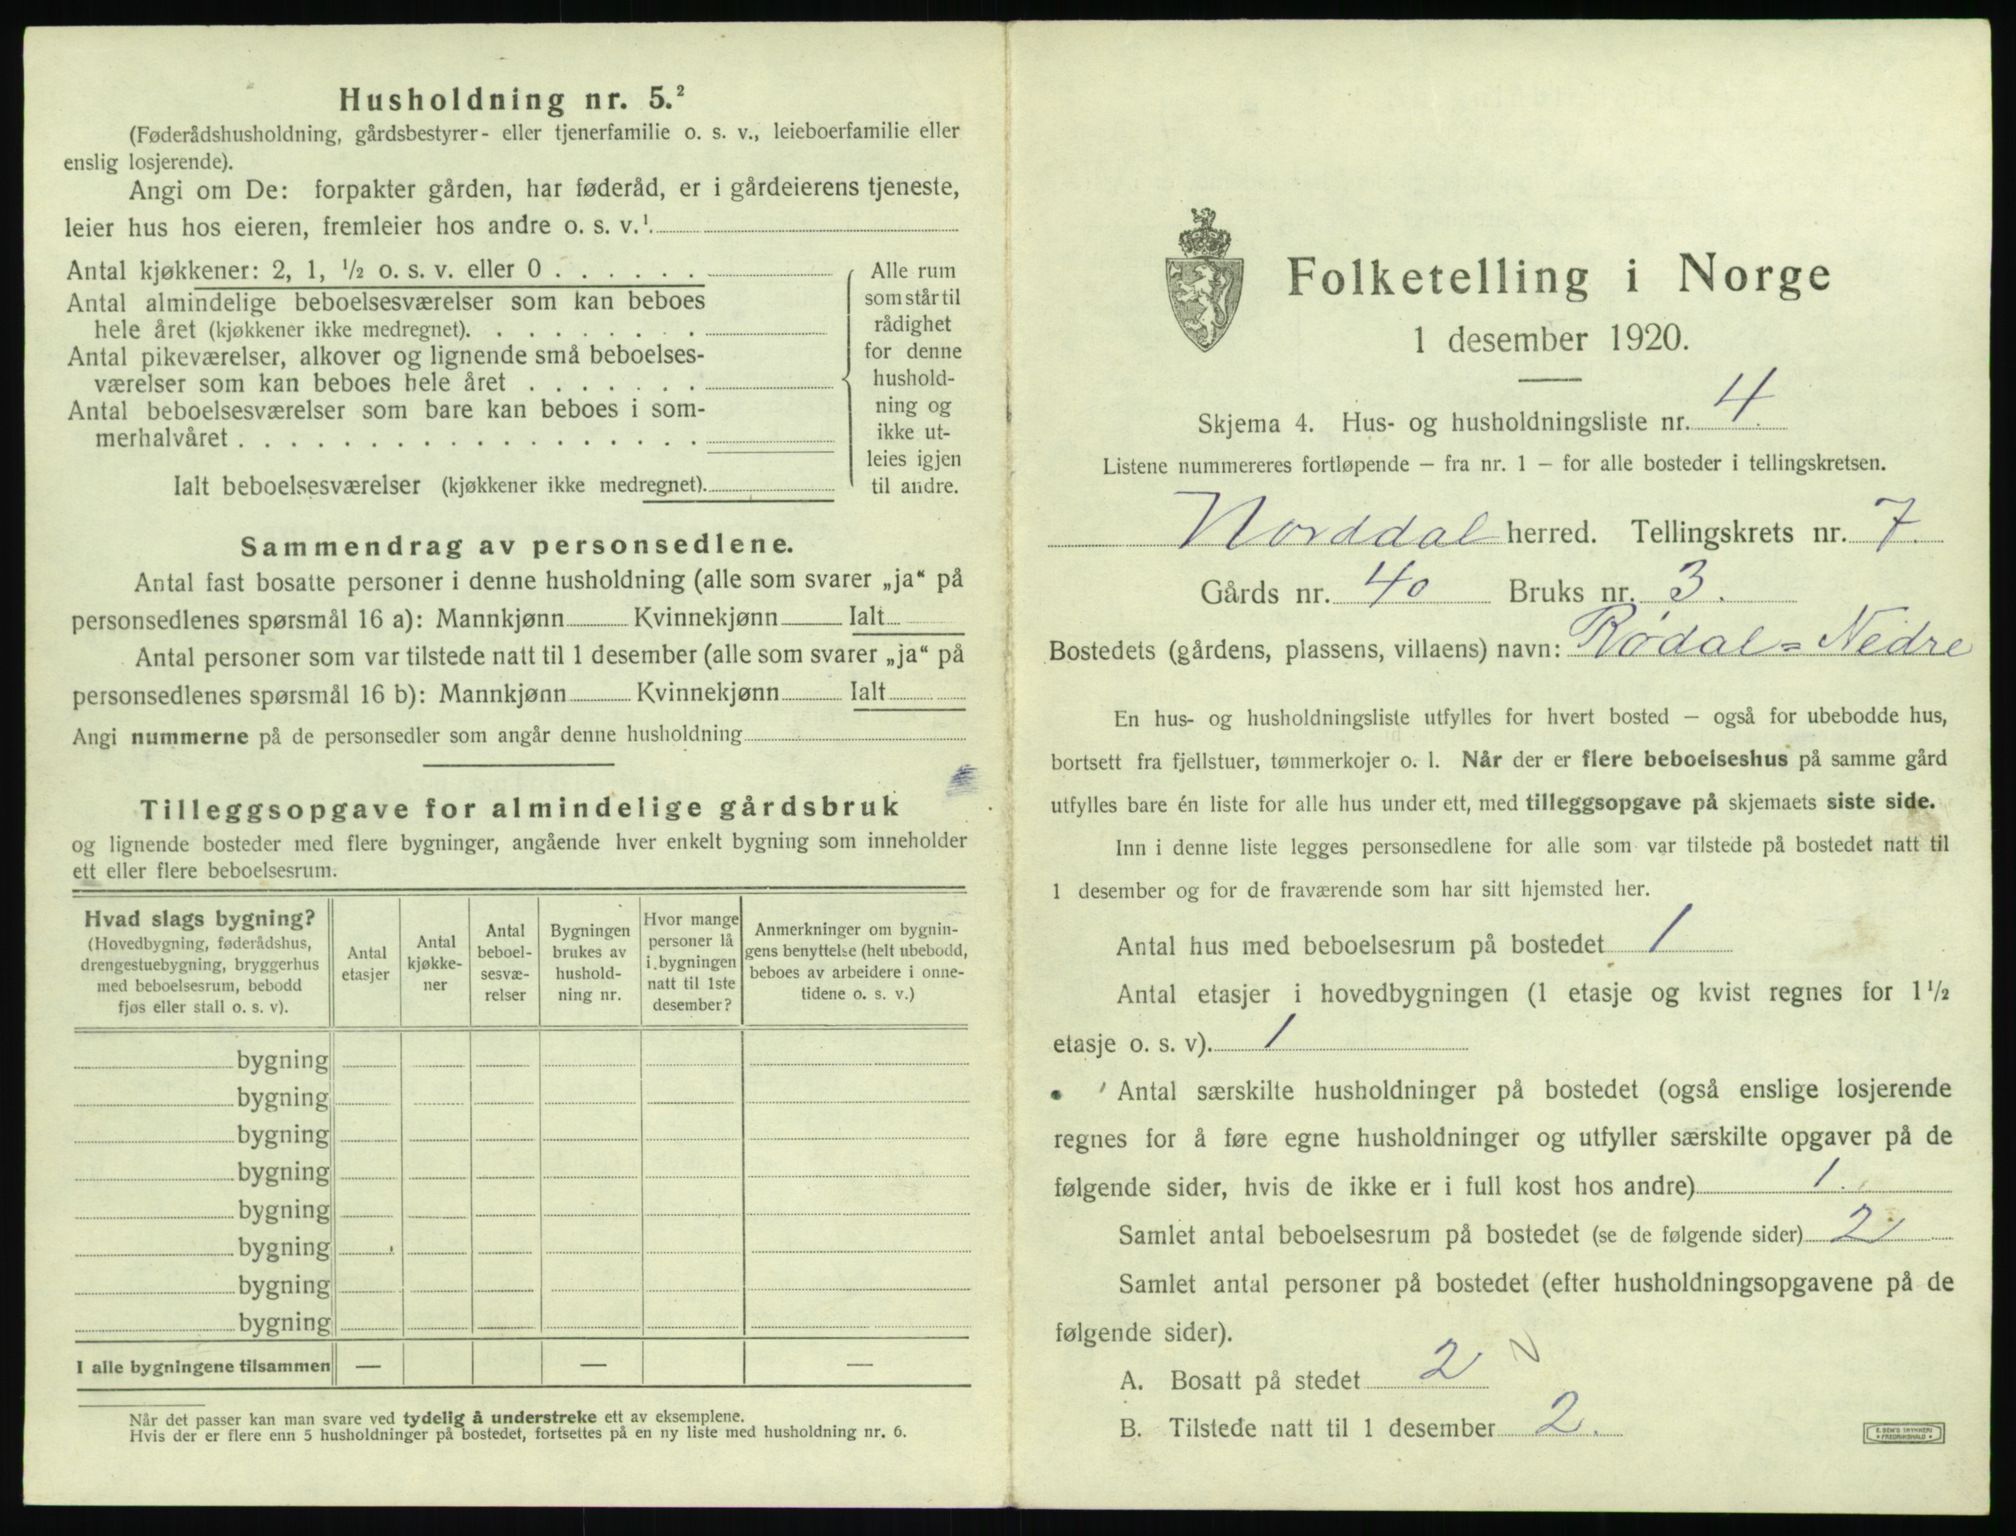 Husholdning nr. 5.²
(Føderådshusholdning, gårdsbestyrer- eller tjenerfamilie o. s. v., leieboerfamilie eller
enslig losjerende).
Angi om De: forpakter gården, har føderåd, er i gårdeierens tjeneste,
leier hus hos eieren, fremleier hos andre o. s. v.¹
Antal kjøkkener: 2, 1, ½ o. s. v. eller 0 . . . . . .
Antal almindelige beboelsesværelser som kan beboes
hele året (kjøkkener ikke medregnet). . . . . . . . .
Antal pikeværelser, alkover og lignende små beboelses-
værelser som kan beboes hele året . . . . . . .
Antal beboelsesværelser som bare kan beboes i som-
merhalvåret . . . . . . . . . . . . . . . . . .
Ialt beboelsesværelser (kjøkkener ikke medregnet).
Alle rum
som står til
rådighet
for denne
hushold-
ning og
ikke ut-
leies igjen
til andre.
Sammendrag av personsedlene.
Antal fast bosatte personer i denne husholdning (alle som svarer „ja“ på
personsedlenes spørsmål 16 a): Mannkjønn Kvinnekjønn Ialt
Antal personer som var tilstede natt til 1 desember (alle som svarer „ja“ på
personsedlenes spørsmål 16 b): Mannkjønn Kvinnekjønn Ialt
Angi nummerne på de personsedler som angår denne husholdning
Tilleggsopgave for almindelige gårdsbruk
og lignende bosteder med flere bygninger, angående hver enkelt bygning som inneholder
ett eller flere beboelsesrum.
Hvad slags bygning?
(Hovedbygning, føderådshus,
drengestuebygning, bryggerhus
med beboelsesrum, bebodd
fjøs eller stall o. s. v).
Antal
etasjer
Antal
kjøkke-
ner
Antal
beboel-
sesvæ-
relser
Bygningen
brukes av
hushold-
ning nr.
Hvor mange
personer lå
i bygningen
natt til 1ste
desember?
Anmerkninger om bygnin-
gens benyttelse (helt ubebodd,
beboes av arbeidere i onne-
tidene o. s. v.)
bygning
bygning
bygning
bygning
bygning
bygning
bygning
bygning
I alle bygningene tilsammen — — —
Når det passer kan man svare ved tydelig å understreke ett av eksemplene.
Hvis der er flere enn 5 husholdninger på bostedet, fortsettes på en ny liste med husholdning nr. 6.
Folketelling i Norge
1 desember 1920.
Skjema 4. Hus- og husholdningsliste nr. 4.
Listene nummereres fortløpende – fra nr. 1 – for alle bosteder i tellingskretsen.
Norddal herred. Tellingskrets nr. 7.
Gårds nr. 40 Bruks nr. 3.
Bostedets (gårdens, plassens, villaens) navn: Rødal=Nedre
En hus- og husholdningsliste utfylles for hvert bosted – også for ubebodde hus,
bortsett fra fjellstuer, tømmerkojer o. l. Når der er flere beboelseshus på samme gård
utfylles bare én liste for alle hus under ett, med tilleggsopgave på skjemaets siste side.
Inn i denne liste legges personsedlene for alle som var tilstede på bostedet natt til
1 desember og for de fraværende som har sitt hjemsted her.
Antal hus med beboelsesrum på bostedet 1
Antal etasjer i hovedbygningen (1 etasje og kvist regnes for 1½
etasje o. s. v). 1
Antal særskilte husholdninger på bostedet (også enslige losjerende
regnes for å føre egne husholdninger og utfyller særskilte opgaver på de
følgende sider, hvis de ikke er i full kost hos andre) 1.
Samlet antal beboelsesrum på bostedet (se de følgende sider) 2
Samlet antal personer på bostedet (efter husholdningsopgavene på de
følgende sider).
A. Bosatt på stedet 2
B. Tilstede natt til 1 desember 2.